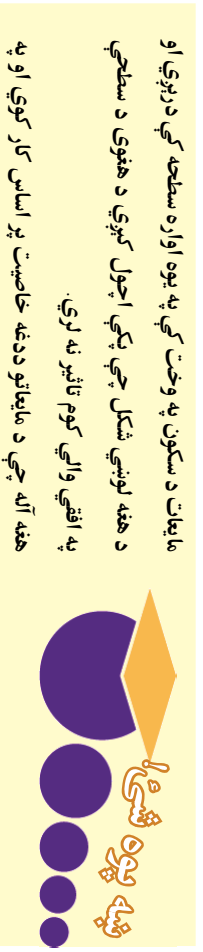 ښه پوه شئ!
مایعات د سکون په وخت کي په يوه اواره سطحه کي دريږي او
د هغه لوښي شکل چي پکي اچول کيږي د هغوی د سطحي
په افقي والي کوم تاثير نه لري.
هغه آله چي د مايعاتو ددغه خاصيت پر اساس کار کوي او په